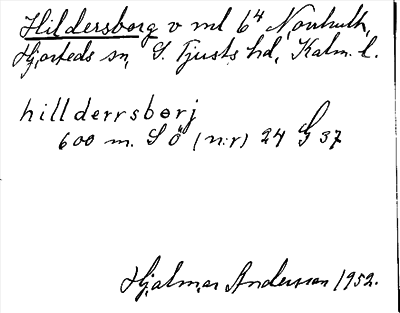 Hildersborg v ml 6⁴ Norrhult,
Hjorteds sn, S. Tjusts hd, Kalm. l.
hillderrsborj
600 m. S Ö (n:r) 24 G 37
Hjalmar Andersson 1952.